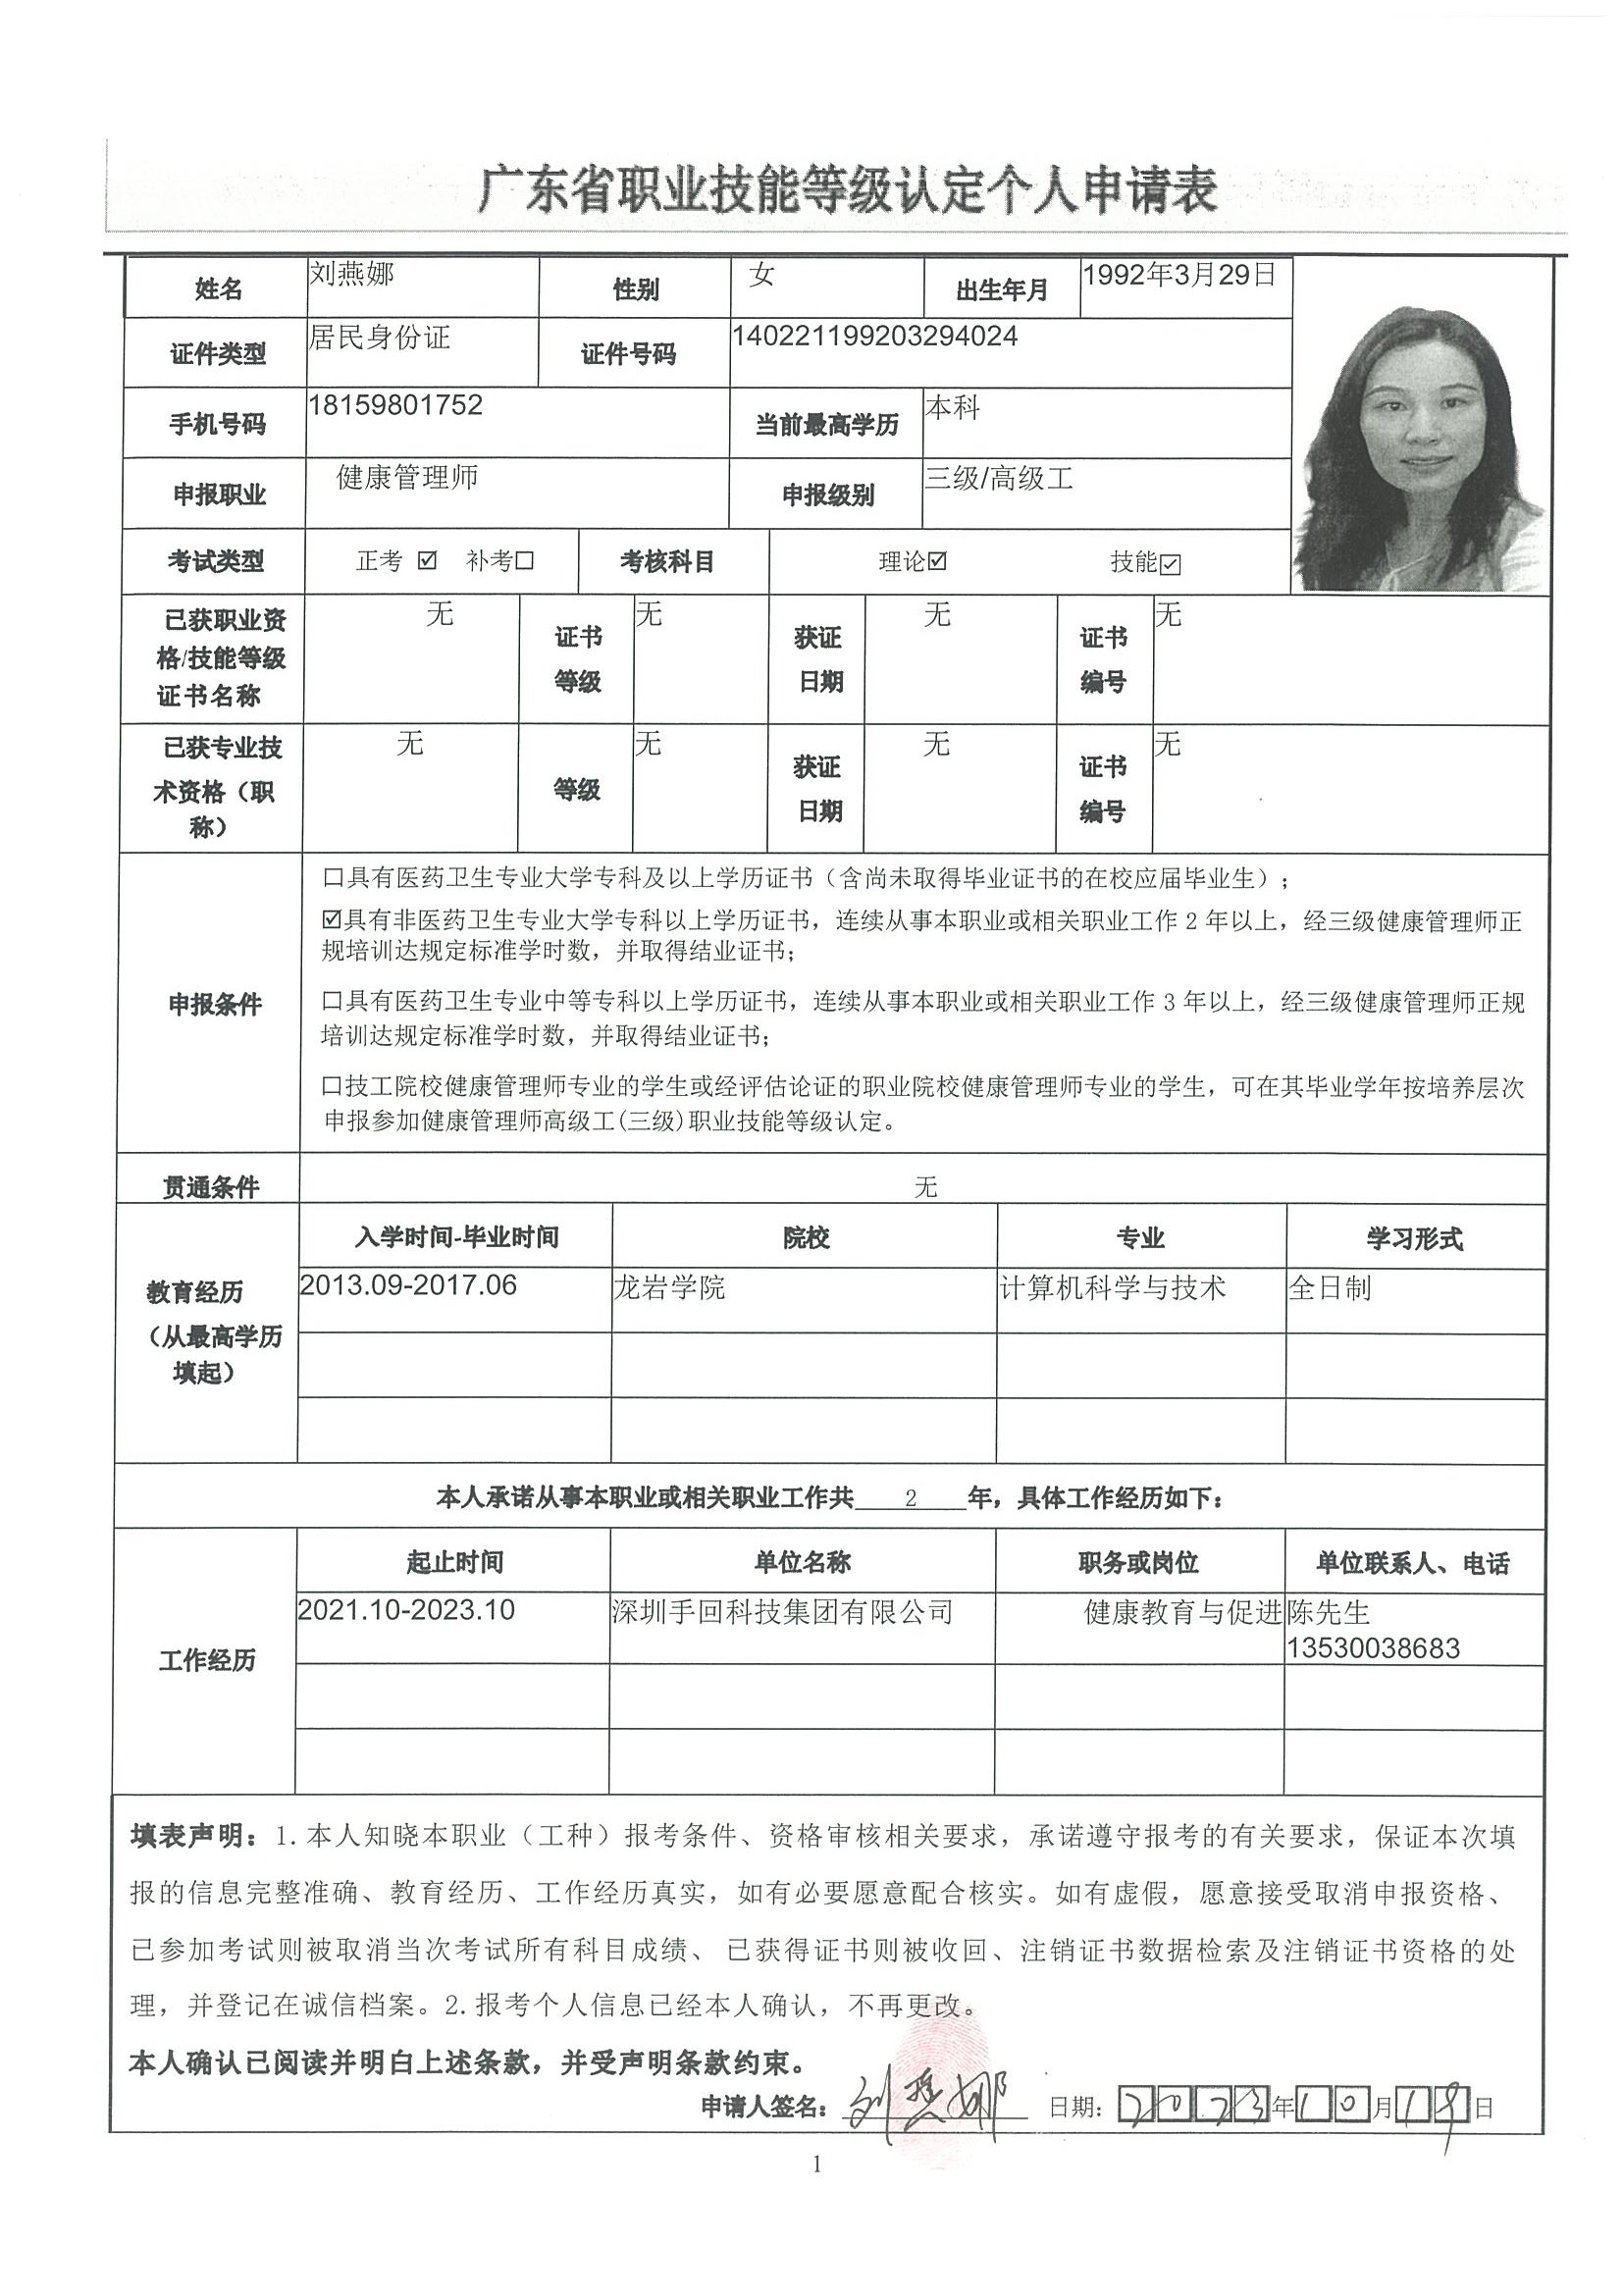 广东省职业技能等级认定个人申请表
姓名 刘燕娜 性别 女 出生年月 1992年3月29日
证件类型 居民身份证 证件号码 140221199203294024
手机号码 18159801752 当前最高学历 本科
申报职业 健康管理师 申报级别 三级/高级工
考试类型 正考 ☑ 补考☐ 考核科目 理论☑ 技能☑
已获职业资
格/技能等级
证书名称
无
证书
等级
无
获证
日期
无
证书
编号
无
已获专业技
术资格（职
称）
无
等级
无
获证
日期
无
证书
编号
无
申报条件
☐具有医药卫生专业大学专科及以上学历证书（含尚未取得毕业证书的在校应届毕业生）；
☑具有非医药卫生专业大学专科以上学历证书，连续从事本职业或相关职业工作 2 年以上，经三级健康管理师正
规培训达规定标准学时数，并取得结业证书；
☐具有医药卫生专业中等专科以上学历证书，连续从事本职业或相关职业工作 3 年以上，经三级健康管理师正规
培训达规定标准学时数，并取得结业证书；
☐技工院校健康管理师专业的学生或经评估论证的职业院校健康管理师专业的学生，可在其毕业学年按培养层次
申报参加健康管理师高级工(三级)职业技能等级认定。
贯通条件 无
教育经历
（从最高学历
填起）
入学时间-毕业时间 院校 专业 学习形式
2013.09-2017.06 龙岩学院 计算机科学与技术 全日制
本人承诺从事本职业或相关职业工作共 2 年，具体工作经历如下：
工作经历
起止时间 单位名称 职务或岗位 单位联系人、电话
2021.10-2023.10 深圳手回科技集团有限公司 健康教育与促进 陈先生
13530038683
填表声明：1.本人知晓本职业（工种）报考条件、资格审核相关要求，承诺遵守报考的有关要求，保证本次填
报的信息完整准确、教育经历、工作经历真实，如有必要愿意配合核实。如有虚假，愿意接受取消申报资格、
已参加考试则被取消当次考试所有科目成绩、 已获得证书则被收回、注销证书数据检索及注销证书资格的处
理，并登记在诚信档案。2.报考个人信息已经本人确认，不再更改。
本人确认已阅读并明白上述条款，并受声明条款约束。
申请人签名：刘燕娜 日期：2023年10月19日
1